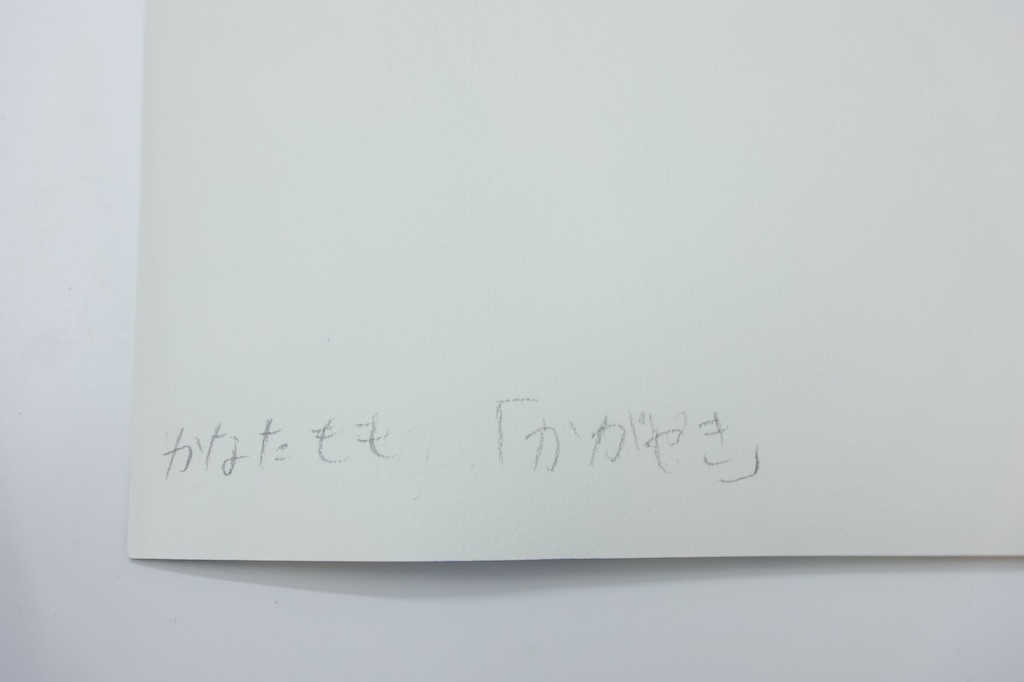 かなたもも 「かがやき」